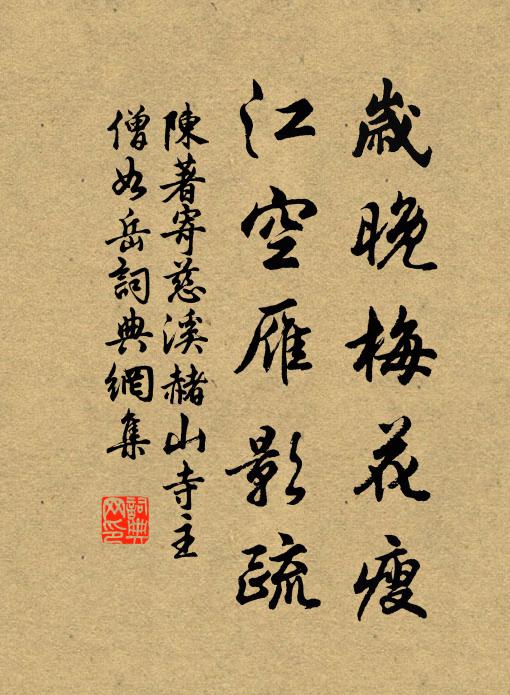 歲晚梅花瘦
江空雁影疏
陳著寄慈溪赭山寺主
僧如岳詞典網集
詞典
网印